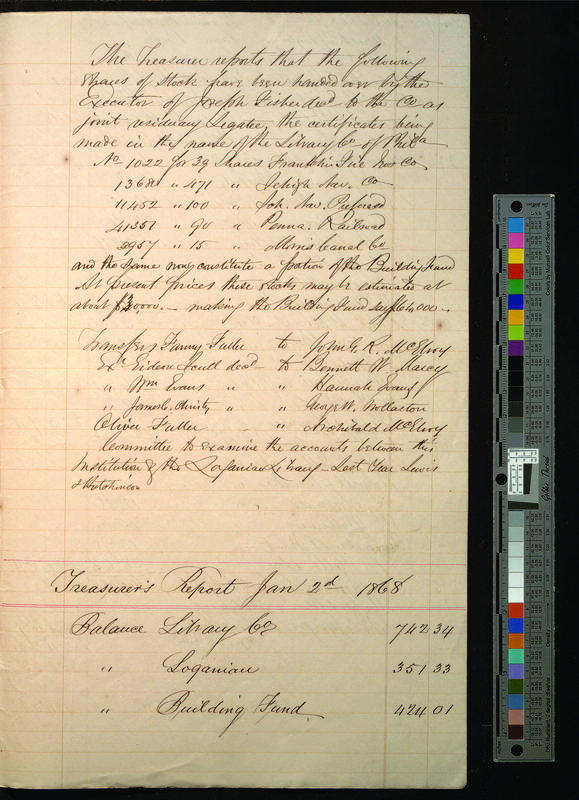 The Treasurer reports that the following
Shares of Stock have been handed over by the
Executor of Joseph Fisher decd to the Co as
joint residuary Legatee, the certificates being
made in the name of the Library Co of Phila
No 1022 for 39 Shares Franklin Fire Ins Co
1368 " 471 " Lehigh Nav. Co
11452 " 100 " Leh. Nav. Preferred
41351 " 90 " Penna. Railroad
3957 " 15 " Morris Canal Co
and the same now constitute a portion of the Building Fund
At present prices these stocks may be estimated at
about $ - making the Building Fund say
Transfers Fanny Fuller to John G. R. McElroy
Exr Gideon Scull decd to Bennett W. Macey
" Wm Evans " " Hannah Evans
" James C. Christy " " George W. Wollaston
Oliver Fuller " " Archibald McElroy
Committee to examine the accounts between this
Institution & the Loganian Library - Last Year Lewis
& Hutchinson
Treasurer's Report Jan 2d 1868
Balance Library Co 742 34
" Loganian 351 33
" Building Fund 424 01